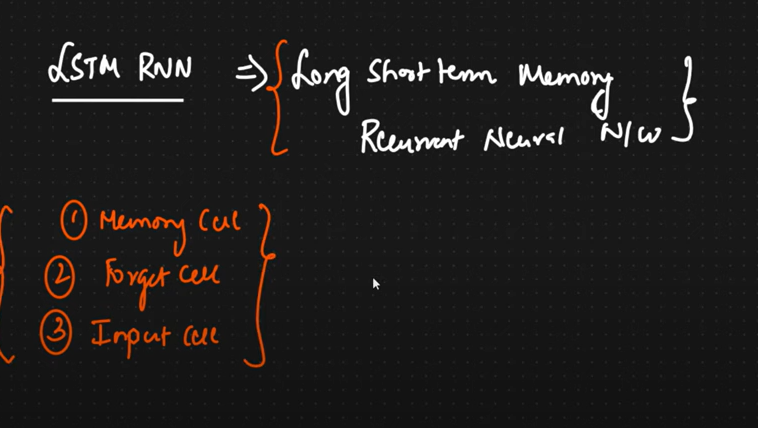 LSTM RNN ⇒ { Long Short term Memory
Recurrent Neural N/W }
① Memory Cell
② Forget Cell
③ Input Cell